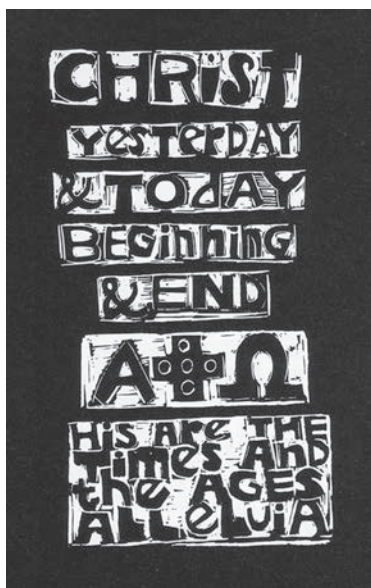 CHRiST
YesTerDAY
& TOdAY
BEGinhinG
& END
A Ω
His Are THE
Times And
the AGES
ALLeluiA